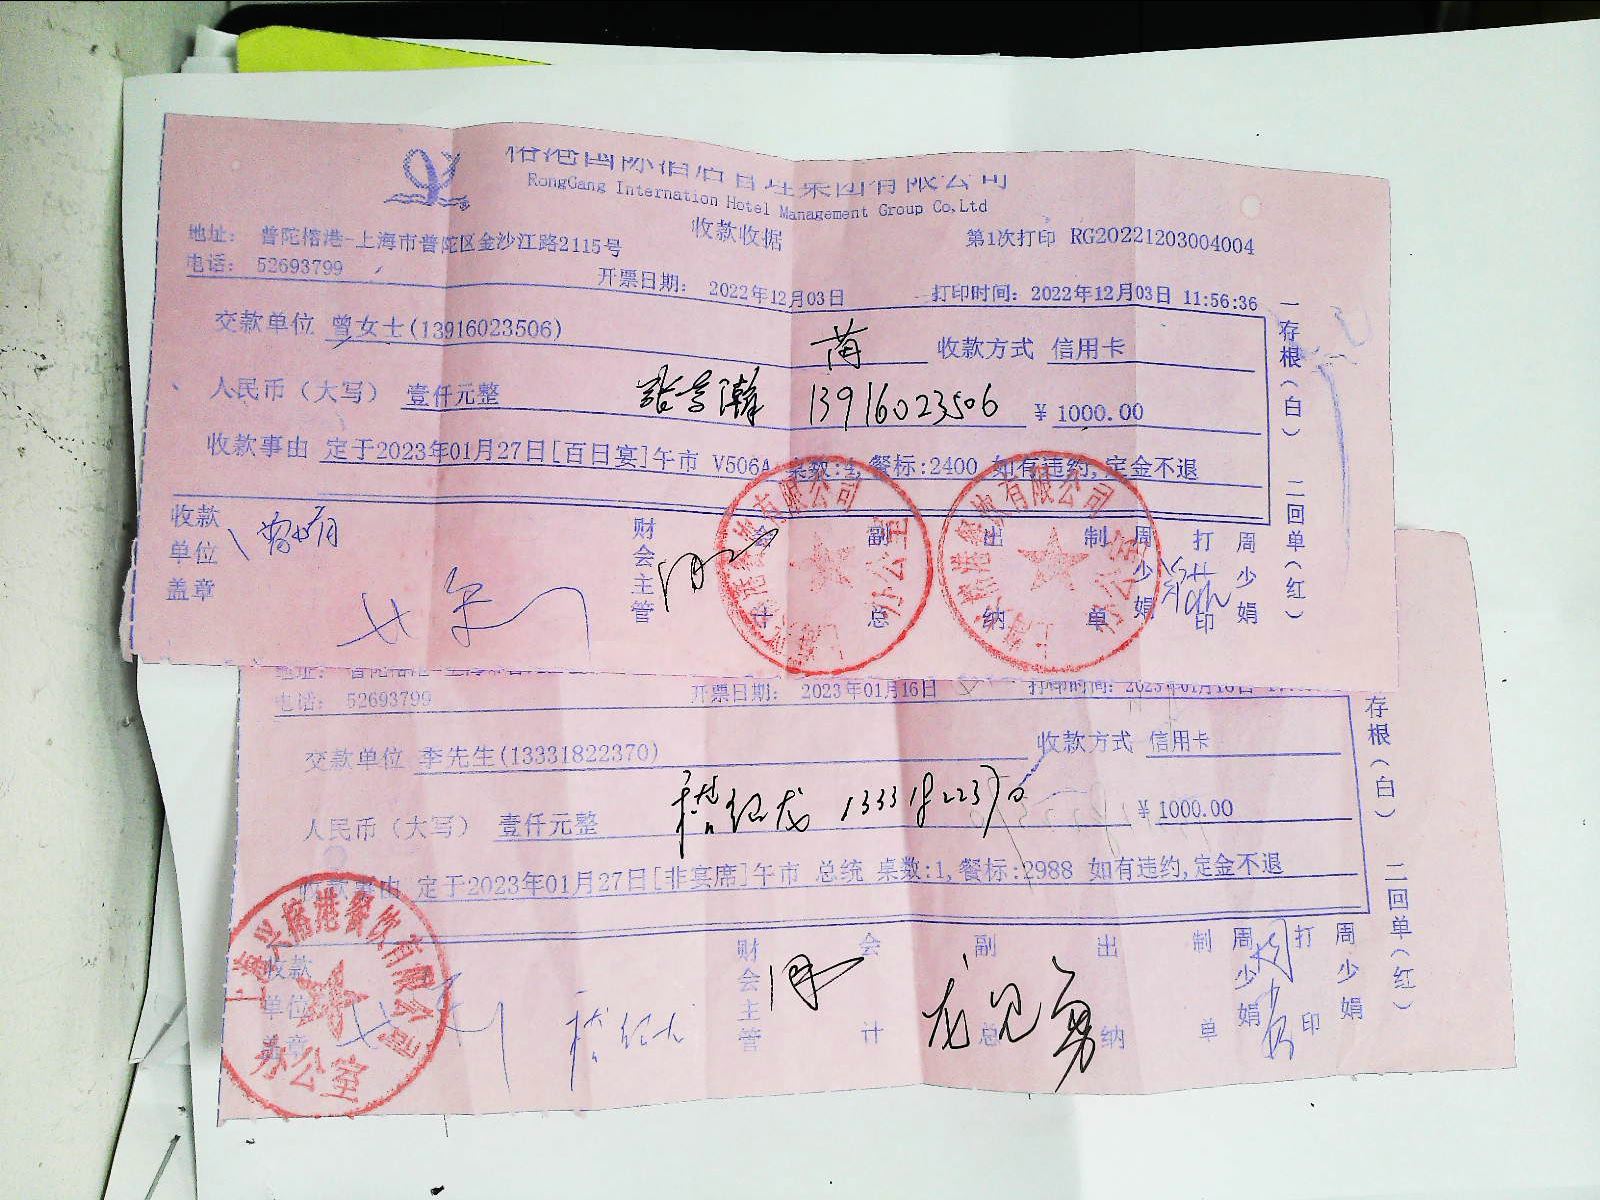 榕港国际酒店管理集团有限公司
RongGang Internation Hotel Management Group Co,Ltd
收款收据
第1次打印 RG20221203004004
地址： 普陀榕港-上海市普陀区金沙江路2115号
电话： 52693799
开票日期： 2022年12月03日
打印时间：2022年12月03日 11:56:36
交款单位 曾女士(13916023506)
苗
收款方式 信用卡
人民币（大写） 壹仟元整
13916023506
¥ 1000.00
收款事由 定于2023年01月27日[百日宴]午市 V506A 桌数:4,餐标:2400 如有违约,定金不退
收款单位盖章
财会主管
会计
副总
出纳
制单
周少娟
打印
周少娟
一存根(白) 二回单(红)
有限公司
办公室
有限公司
办公室
地址： 普陀榕港-上海市普陀
电话： 52693799
开票日期： 2023年01月16日
打印时间：2023年01月16日
交款单位 李先生(13331822370)
收款方式 信用卡
人民币（大写） 壹仟元整
13331822370
¥ 1000.00
收款事由 定于2023年01月27日[非宴席]午市 总统 桌数:1,餐标:2988 如有违约,定金不退
收款单位盖章
财会主管
会计
副总
出纳
制单
周少娟
打印
周少娟
存根(白) 二回单(红)
上海兴榕港餐饮有限公司
办公室